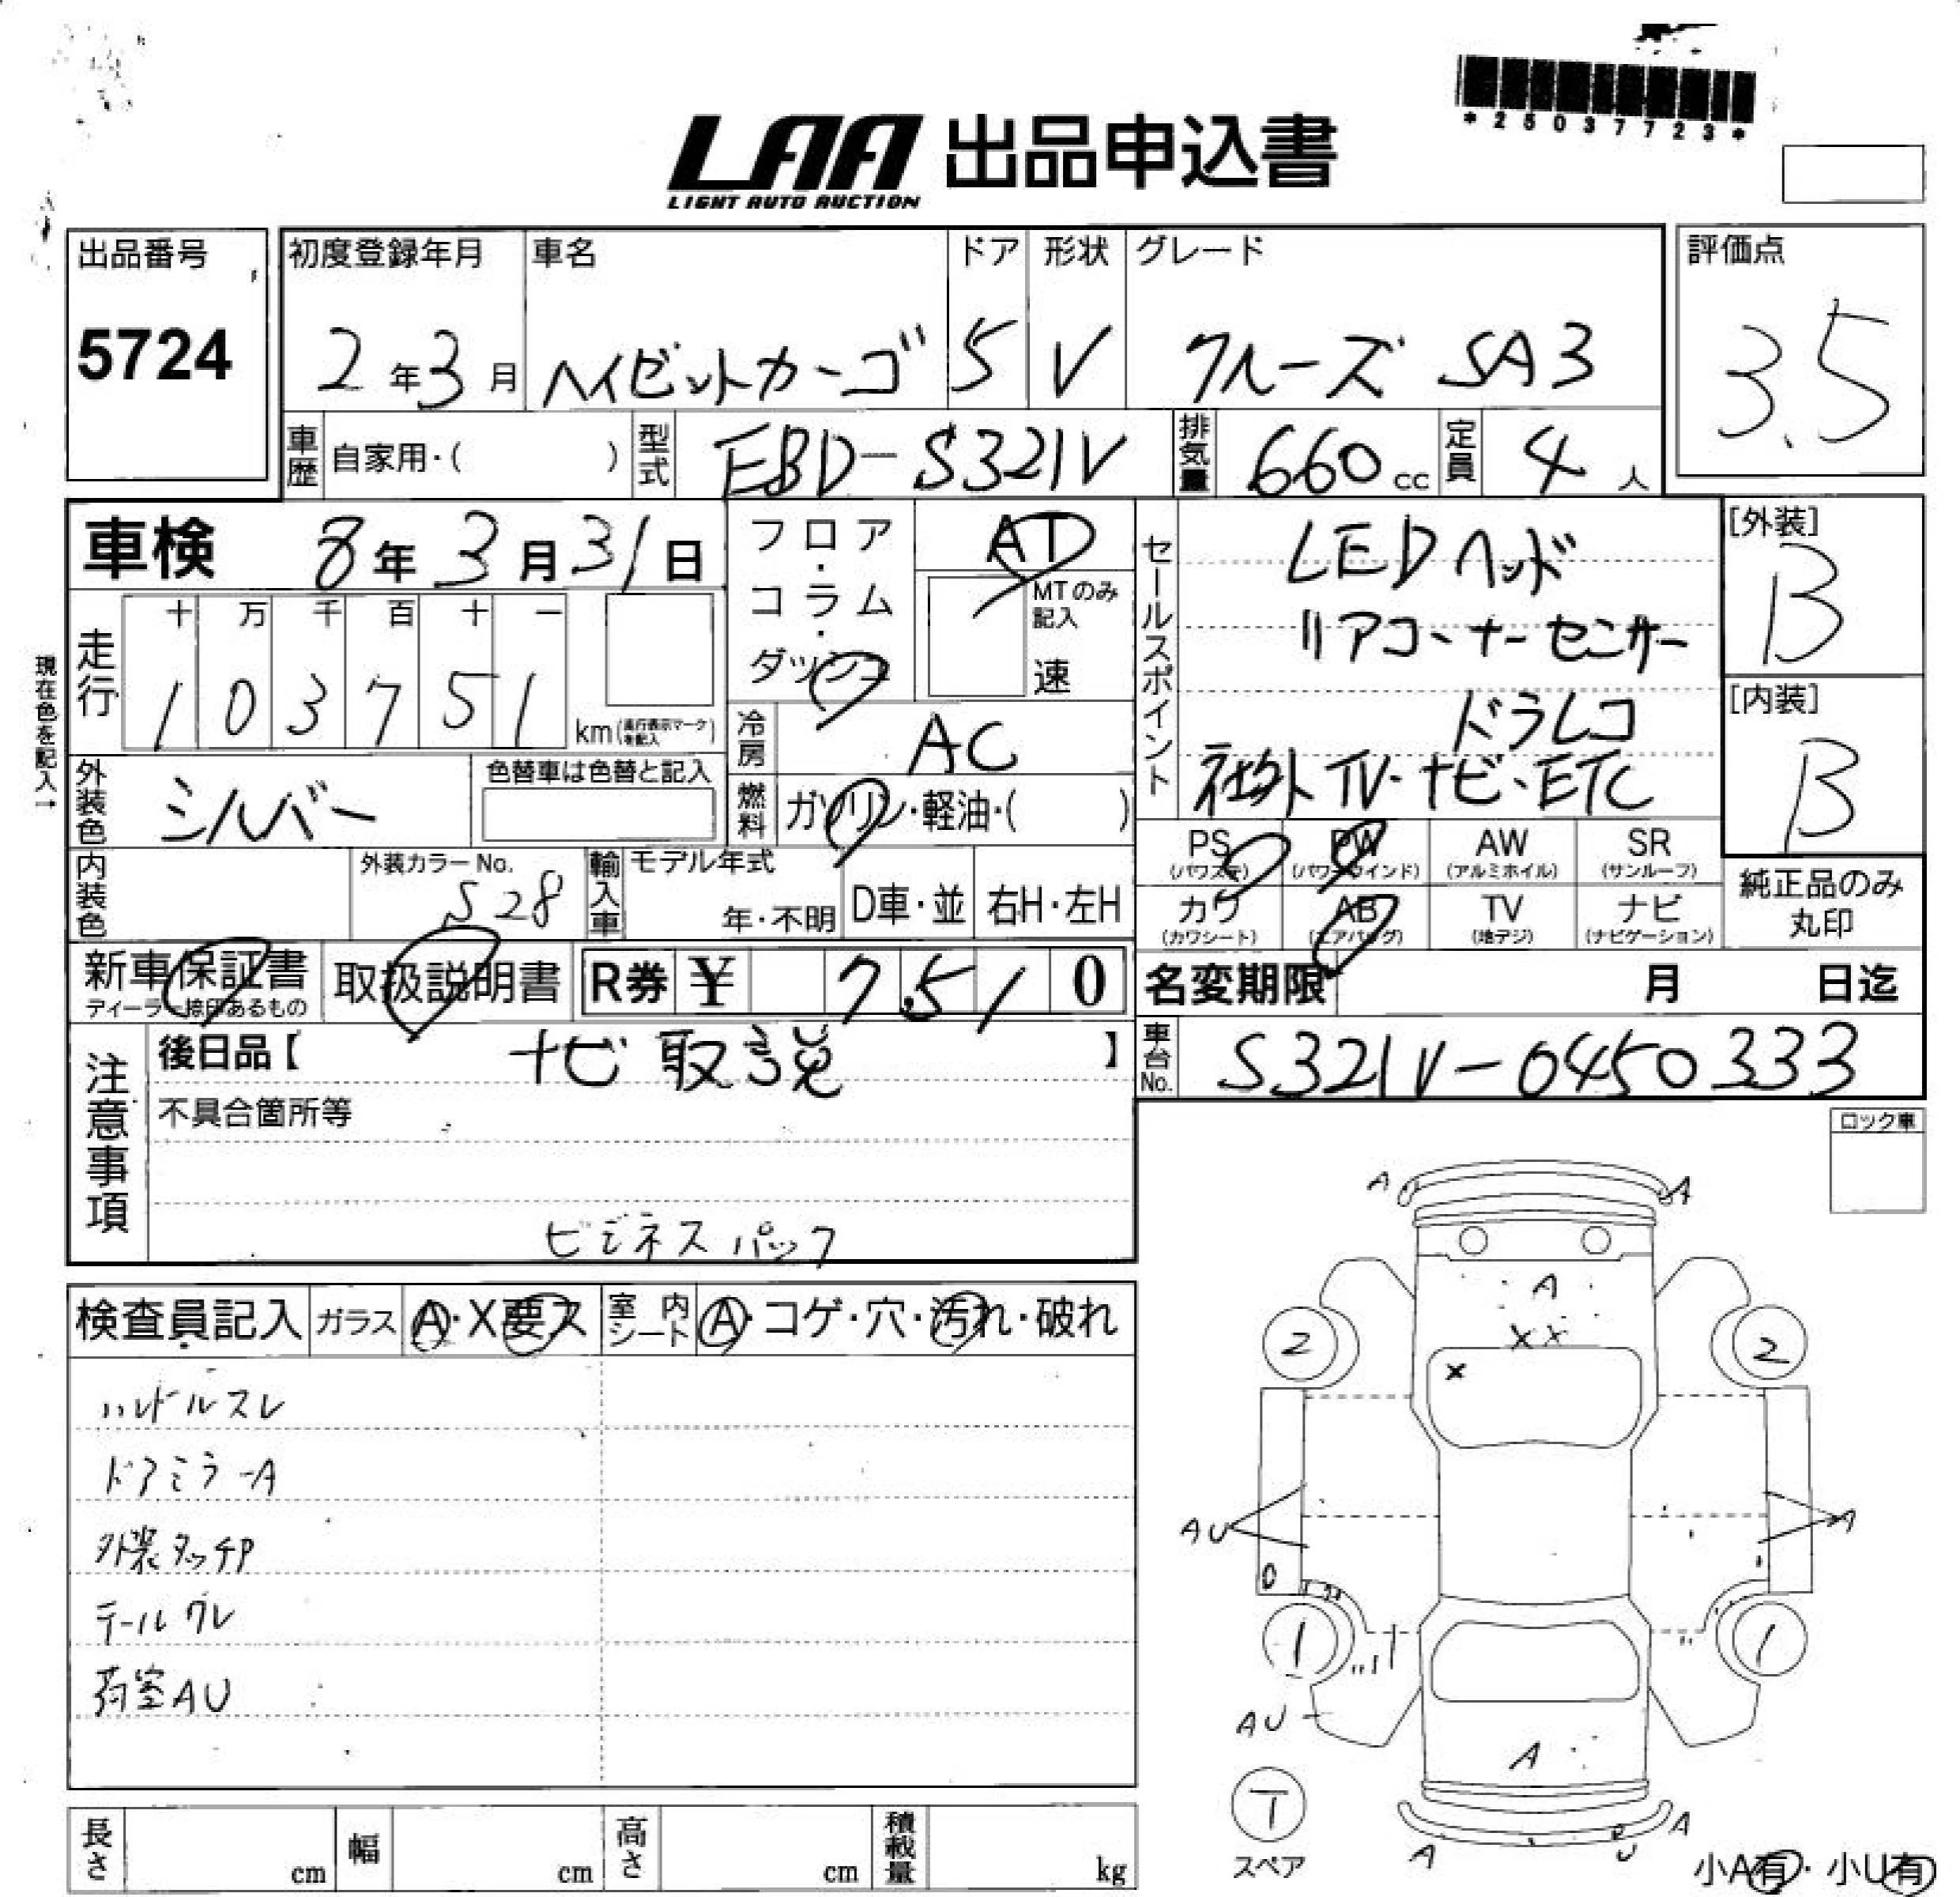 *25037723*
LAA 出品申込書
LIGHT AUTO AUCTION
出品番号 初度登録年月 車名 ドア 形状 グレード 評価点
5724 2年3月 ハイゼットカーゴ 5 V クルーズ SA3 3.5
車歴 自家用・( ) 型式 EBD-S321V 排気量 660cc 定員 4人
車検 8年3月31日 フロア・コラム・ダッシュ AT
MTのみ記入 速
現在色を記入→
走行 十 万 千 百 十 一
1 0 3 7 5 1 km(走行表示マークを記入)
冷房 AC
外装色 シルバー 色替車は色替と記入
燃料 ガソリン・軽油・( )
内装色 外装カラーNo. S28 輸入車 モデル年式 年・不明 D車・並 右H・左H
セールスポイント
LEDヘッド
リアコーナーセンサー
ドラレコ
社外TV・ナビ・ETC
[外装] B
[内装] B
PS (パワステ) PW (パワーウインド) AW (アルミホイル) SR (サンルーフ)
カワ (カワシート) AB (エアバッグ) TV (地デジ) ナビ (ナビゲーション)
純正品のみ丸印
新車保証書 ディーラー捺印あるもの 取扱説明書 R券 ¥ 7,510
名変期限 月 日迄
車台No. S321V-0450333
注意事項
後日品【 ナビ取説 】
不具合箇所等
ビジネスパック
ロック車
検査員記入 ガラス A・X要ス 室内シート A・コゲ・穴・汚れ・破れ
ハンドルスレ
ドアミラーA
外装タッチP
テールワレ
荷室AU
A A
A
X X
X
2 2
AU A
1 1
AU
A
T
スペア
A A
U
小A有・小U有
長さ cm 幅 cm 高さ cm 積載量 kg